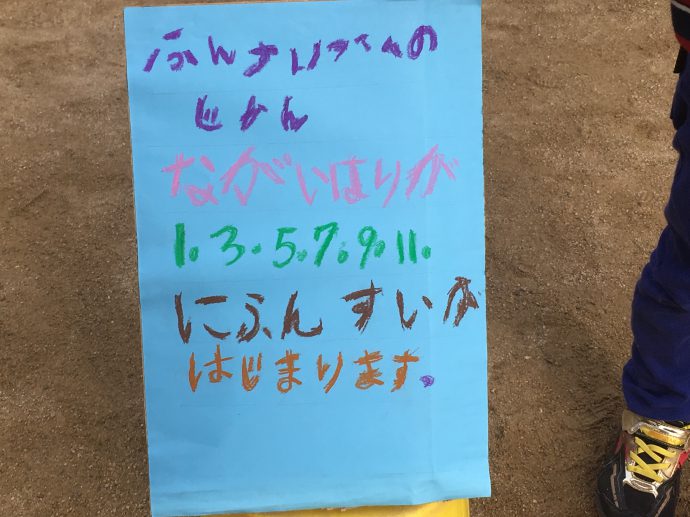 ふんすいつくんの
じかん
ながいはりが
1。3。5。7。9。11。
にふんすいが
はじまります。